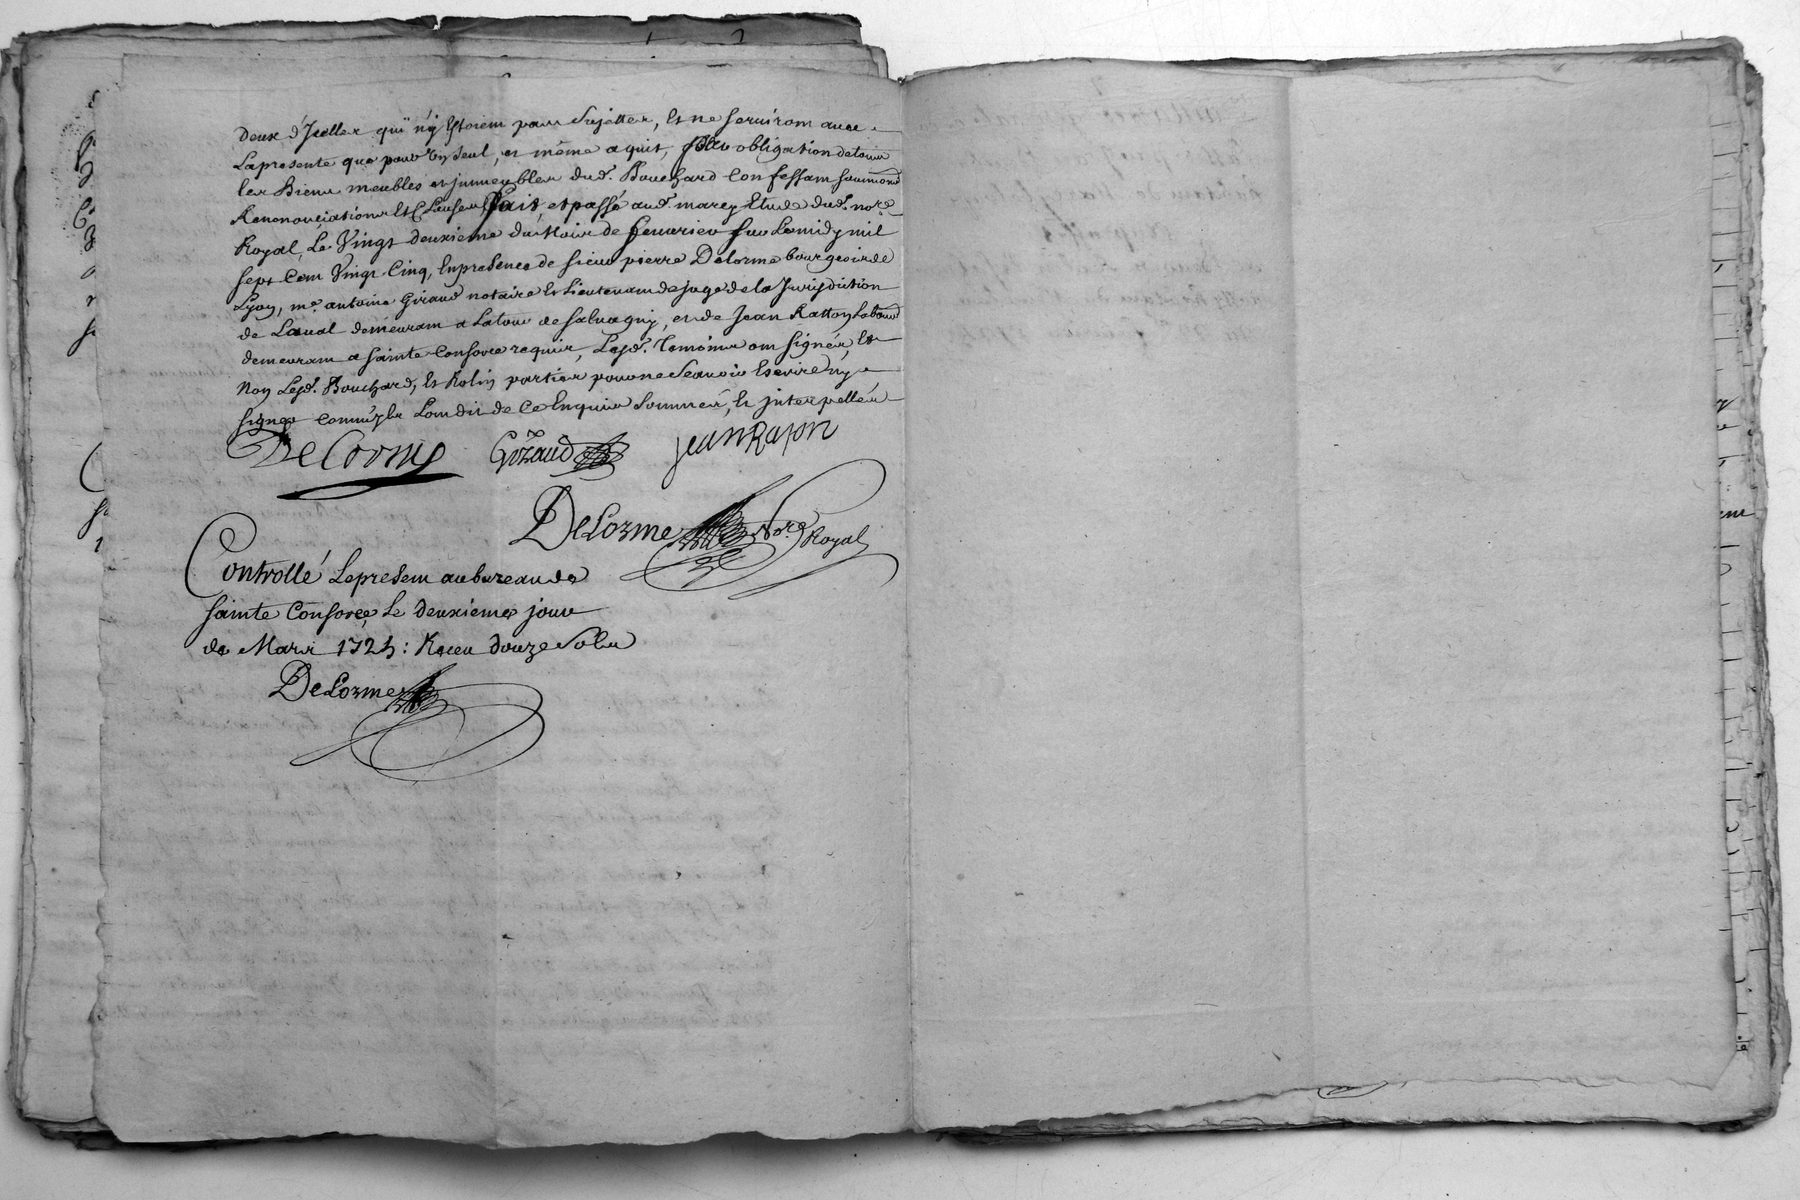 deux d'Jcelles qui n'ÿ Estoient pour Sujettes, Et ne Serviront avec
Lapresente que pour Un Seul, et même aquit, obligation de tous
les Biens meubles et jmmeubles dud. Bouchard Confessant Soummons
Renonciations Et Clauses Fait, et passé aud. marcy Etude dud. no.re
Royal, Le Vingt deuxieme du Mois de fevrier Sur Le midy mil
Sept Cent Vingt Cinq, En presence de Sieur pierre Delorme bourgeois de
Lyon, me. antoine Giraud notaire Et Lieutenant de juge de la Jurisdiction
de Laval demeurant a Latour de Salvagny, et de Jean Ratton Labour
demeurant a Sainte Consorce requis, Lesd. Temoins ont Signés, Et
Non Lesd. Bouchard, Et Rolin parties pour ne Scavoir Escrire ny
Signer Comm'jls L'ont dit de Ce Enquis Sommés, Et jnterpellés
De Lorme Giraud jean Raton
DeLorme No.re Royal
Controllé Le present au bureau de
Sainte Consorce Le deuxieme jour
de Mars 1725: Receu douze Sols
DeLorme